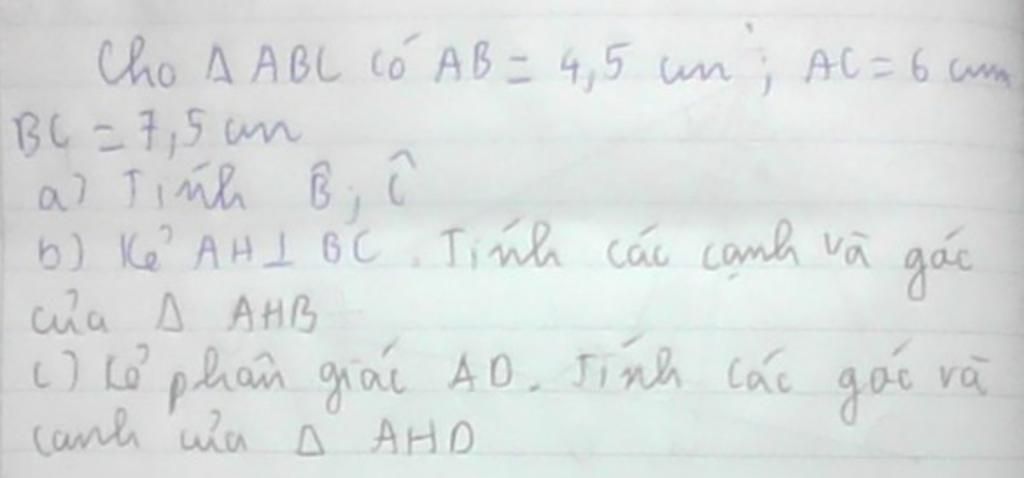 Cho Δ ABC có AB = 4,5 cm ; AC = 6 cm
BC = 7,5 cm
a) Tính B̂ ; Ĉ
b) Kẻ AH ⊥ BC . Tính các cạnh và góc
của Δ AHB
c) Kẻ phân giác AD. Tính các góc và
cạnh của Δ AHD